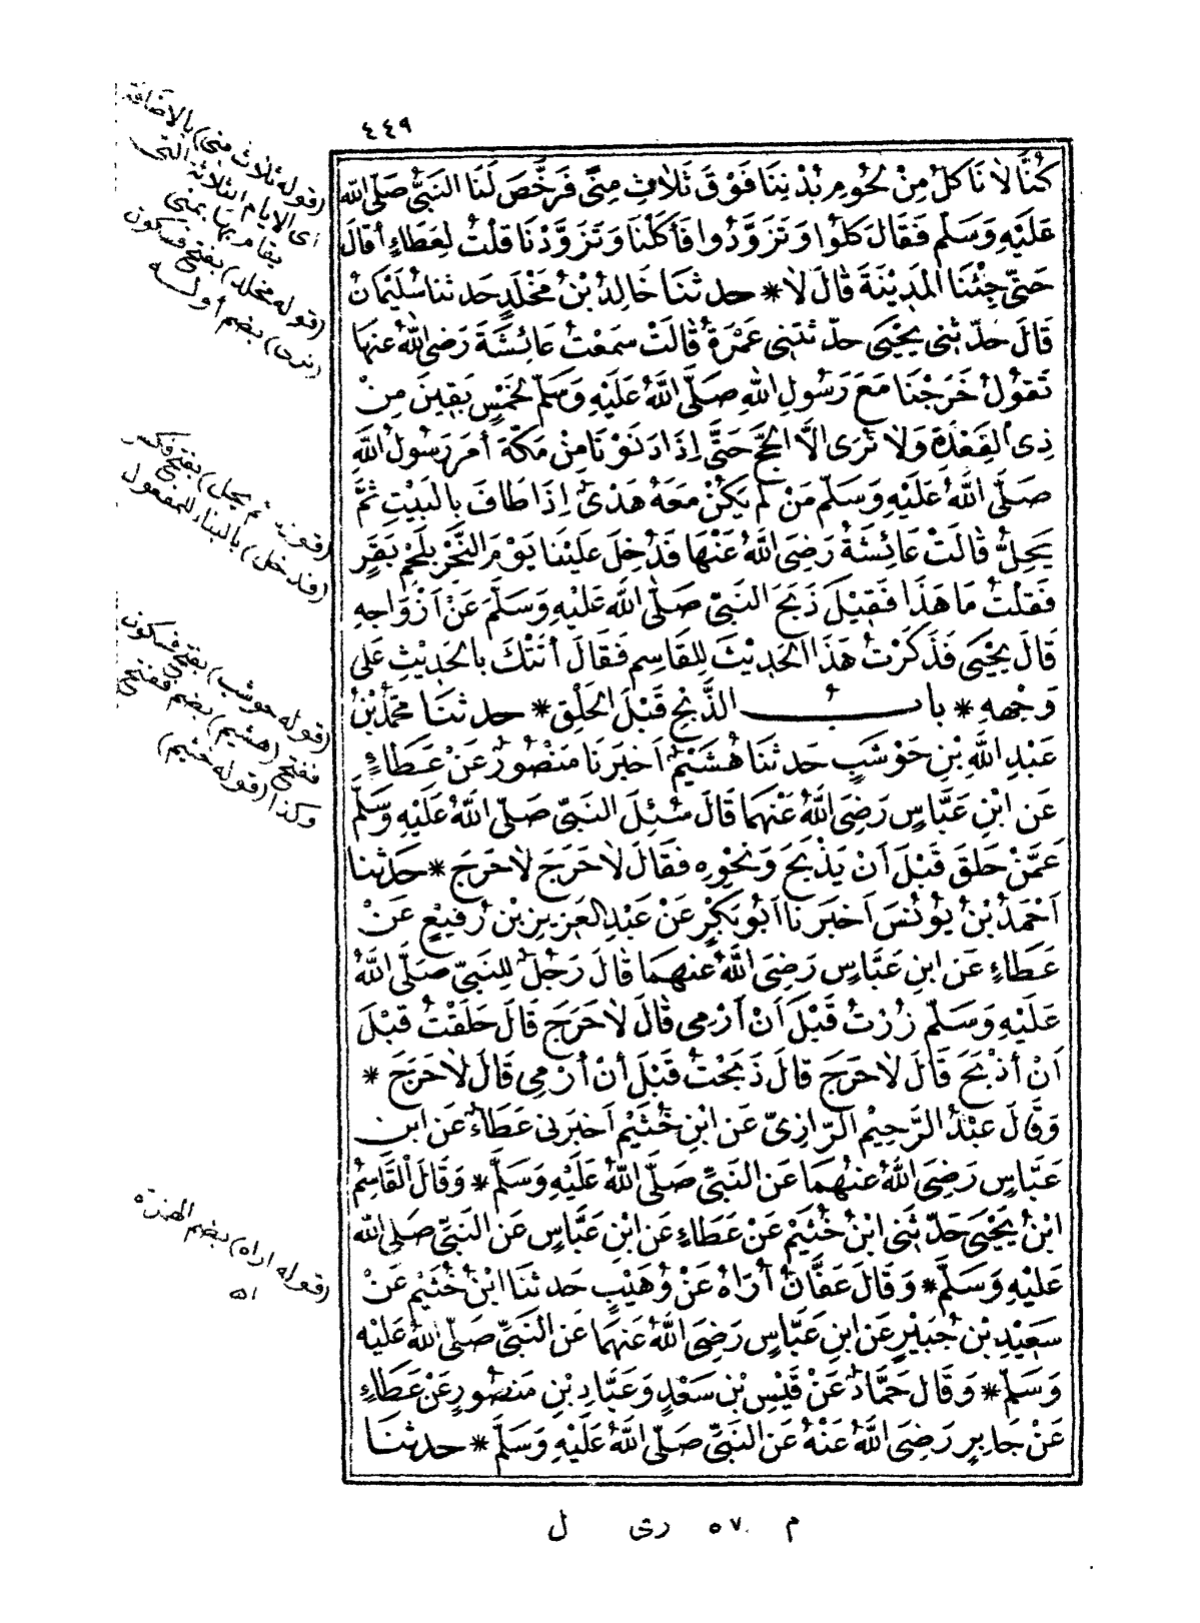 ٤٤٩
كُنَّا لَا نَأكُلُ مِنْ لُحُومِ بُدْنِنَا فَوْقَ ثَلَاثِ مِنًى فَرَخَّصَ لَنَا النَّبِىُّ صَلَّى اللّٰه
عَلَيْهِ وَسَلَّم فَقَالَ كُلُوا وَتَزَوَّدُوا فَأكَلْنَا وَتَزَوَّدْنَا قُلْتُ لِعَطَاءٍ أقَالَ
حَتَّى جِئْنَا المَدِيْنَةَ قَالَ لَا * حدثنَا خَالِدُ بْنُ مَخْلَدٍ حَدثنَا سُلَيْمَانُ
قَالَ حَدَّثَنِى يَحْيَى حدّثتنِى عَمْرَةُ قَالَتْ سَمِعْتُ عَائِشَةَ رَضِىَ اللّٰهُ عَنْهَا
تَقُولُ خَرَجْنَا مَعَ رَسُولِ اللّٰهِ صَلَّى اللّٰهُ عَلَيْهِ وَسَلّم لِخَمْسٍ بَقِينَ مِنْ
ذِى القَعْدَةِ وَلَا نُرَى اِلَّا الحَجَّ حَتَّى اِذَا دَنَوْنَا مِنْ مَكَّةَ أمَرَ رَسُولُ اللّٰهِ
صَلَّى اللّٰهُ عَلَيْهِ وَسَلّم مَنْ لَمْ يَكُنْ مَعَهُ هَدْىٌ اِذَا طَافَ بِالبَيْتِ ثُمَّ
يَحِلُّ قَالَتْ عَائِشَةُ رَضِىَ اللّٰهُ عَنْهَا فَدُخِلَ عَلَيْنَا يَوْمَ النَّحْرِ بِلَحْمِ بَقَرٍ
فَقُلْتُ مَا هَذَا فَقِيْلَ ذَبَحَ النَّبِىّ صَلَّى اللّٰه عَلَيْهِ وَسَلَّمَ عَنْ اَزْوَاجِهِ
قَالَ يَحْيَى فَذَكَرْتُ هَذَا الحَدِيْثَ لِلقَاسِمِ فَقَالَ أتَتْكَ بِالحَدِيْثِ عَلَى
وَجْهِهِ * بابُ الذَّبْحِ قَبْلَ الحَلْقِ * حدثنَا مُحَمَّدُ بْنُ
عَبْدِ اللّٰهِ بْنِ حَوْشَبٍ حَدثنَا هُشَيْمٌ اَخبَرَنَا مَنْصُورٌ عَنْ عَطَاءٍ
عَن ابْنِ عَبَّاسٍ رَضِىَ اللّٰهُ عَنْهُمَا قَالَ سُئِلَ النَّبِىّ صَلّى اللّٰهُ عَلَيْهِ وَسَلَّم
عَمَّنْ حَلَقَ قَبْلَ اَنْ يَذْبَحَ وَنَحْوِهِ فَقَالَ لَا حَرَجَ لَا حَرَجَ * حَدثنا
اَحْمَدُ بْنُ يُونُسَ اَخبَرَنا اَبُو بَكْرٍ عَنْ عَبْدِ العَزِيزِ بْنِ رُفَيْعٍ عَنْ
عَطَاءٍ عَن ابنِ عَبَّاسٍ رَضِىَ اللّٰهُ عَنْهمَا قَالَ رَجُلٌ لِلنَّبِىّ صَلَّى اللّٰهُ
عَلَيْهِ وَسَلّم زُرْتُ قَبْلَ اَنْ اَرْمِى قَالَ لَا حَرَجَ قَالَ حَلَقْتُ قَبْلَ
اَنْ أذْبَحَ قَالَ لَا حَرَجَ قالَ ذَبَحْتُ قَبْلَ أنْ أرْمِى قَالَ لَا حَرَجَ *
وَقَالَ عَبْدُ الرَّحِيْم الرَّازِىّ عَن ابْنِ خُثَيْم اَخبَرنى عَطَاءٌ عَن ابن
عَبَّاسٍ رَضِىَ اللّٰهُ عَنْهُمَا عَن النَّبِىِّ صَلَّى اللّٰهُ عَلَيْهِ وَسَلَّم * وَقَالَ القَاسِمُ
ابْنُ يَحْيَى حَدَّثَنِى ابْنُ خُثَيْمٍ عَنْ عَطَاءٍ عَن ابْنِ عَبَّاسٍ عَن النَّبِىّ صَلَى اللّٰه
عَلَيْهِ وَسَلَّم * وَقَالَ عَفَّانُ أُرَاهُ عَنْ وُهَيْبٍ حَدثنَا ابْنُ خُثَيْم عَنْ
سَعِيْدِ بْنِ جُبَيْرٍ عَن ابنِ عَبَّاسٍ رَضِىَ اللّٰهُ عَنهمَا عَن النَّبِىِّ صَلّى اللّٰهُ عَلَيْه
وَسَلّم * وَقَال حَمَّادٌ عَنْ قَيْسِ بْنِ سَعْدٍ وَعَبَّادِ بْنِ مَنصُورٍ عَنْ عَطَاءٍ
عَنْ جَابِرٍ رَضِىَ اللّٰهُ عَنْهُ عَن النَّبِىِّ صَلّى اللّٰهُ عَلَيْهِ وَسَلَّم * حدثنَا
(قوله ثلاث منى) بالاضافة
اى الايام الثلاثة التى
يقام بها بمنى
(قوله مخلد) بفتح فسكون
(نرى) بضم أوله
(قوله ثم يحل) بفتح فكسر
(فدخل) بالبناء للمفعول
(قوله حوشب) بفتح فسكون
ففتح (هشيم) بضم ففتح
وكذا (قوله خثيم)
(قوله اراه) بضم الهمزة
اه
م ٥٧ رى ل